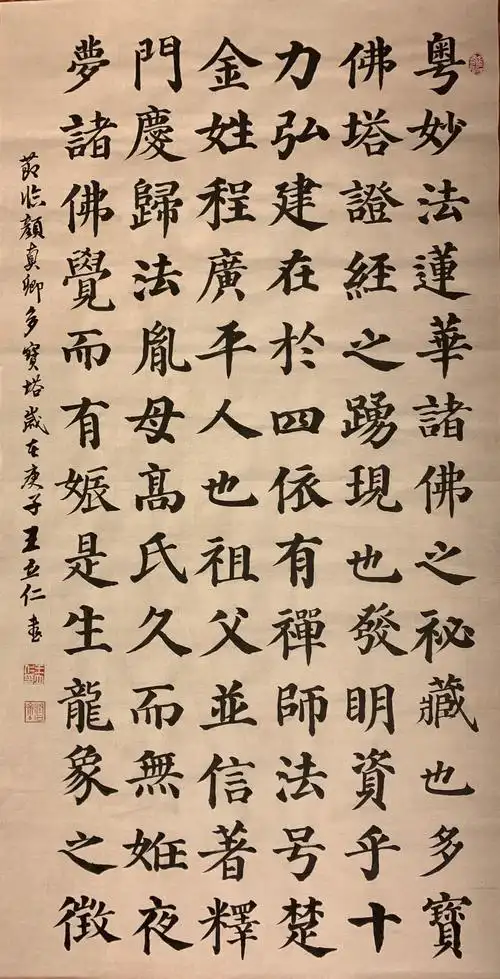 粤妙法蓮華諸佛之祕藏也多寶
佛塔證經之踴現也發明資乎十
力弘建在於四依有禪師法号楚
金姓程廣平人也祖父並信著釋
門慶歸法胤母高氏久而無姙夜
夢諸佛覺而有娠是生龍象之徴
節临顏真卿多寶塔歲在庚子王立仁書